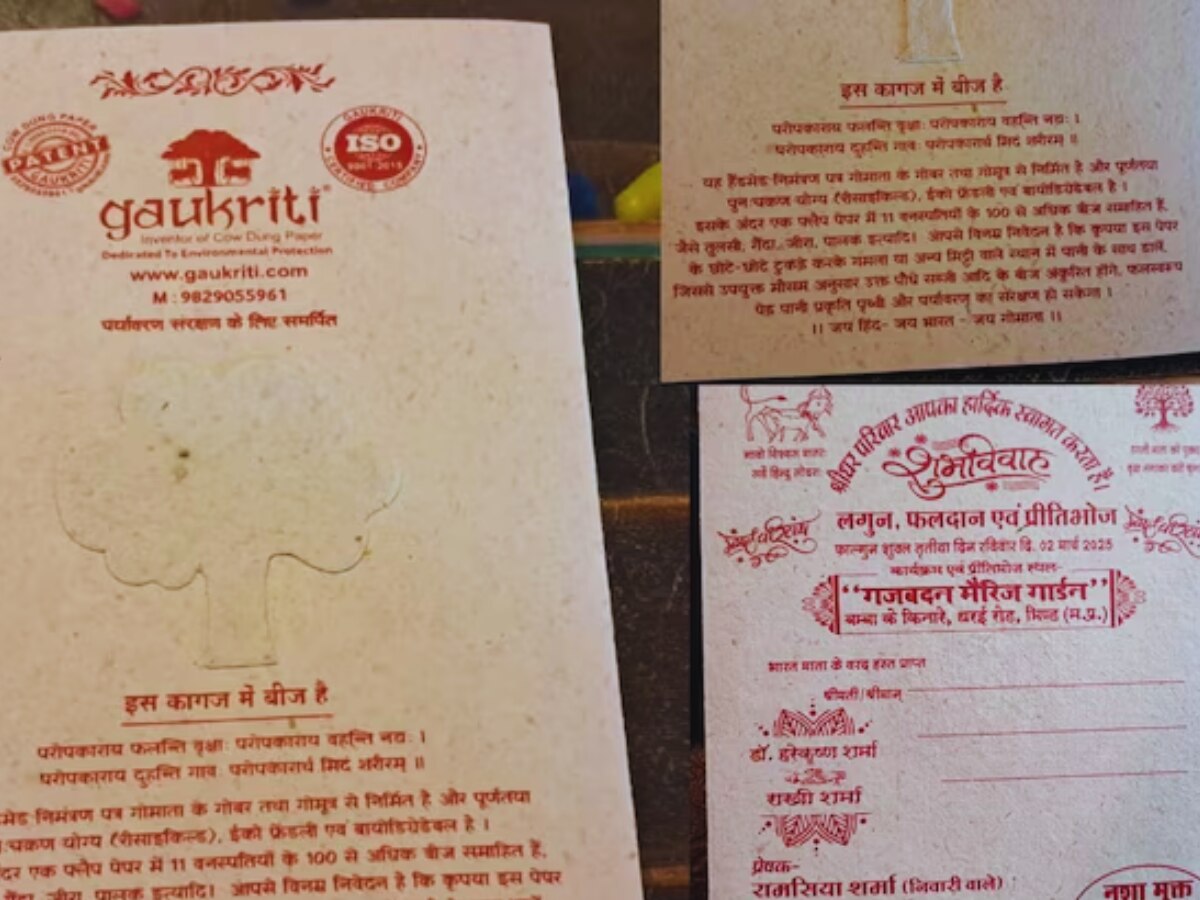 COW DUNG PAPER
PATENT
GAUKRITI
GAUKRITI
ISO
9001:2015
CERTIFIED COMPANY
gaukriti
Inventor of Cow Dung Paper
Dedicated To Environmental Protection
www.gaukriti.com
M : 9829055961
पर्यावरण संरक्षण के लिए समर्पित
इस कागज में बीज है
परोपकाराय फलन्ति वृक्षाः परोपकाराय वहन्ति नद्यः ।
परोपकाराय दुहन्ति गावः परोपकारार्थ मिदं शरीरम् ॥
निमंत्रण पत्र गोमाता के गोबर तथा गोमूत्र से निर्मित है और पूर्णतया
योग्य (रीसाइकिल्ड), ईको फ्रेंडली एवं बायोडिग्रेडेबल है ।
एक फ्लैप पेपर में 11 वनस्पतियों के 100 से अधिक बीज समाहित हैं,
जीरा, पालक इत्यादि। आपसे विनम्र निवेदन है कि कृपया इस पेपर
इस कागज में बीज है
परोपकाराय फलन्ति वृक्षाः परोपकाराय वहन्ति नद्यः ।
परोपकाराय दुहन्ति गावः परोपकारार्थ मिदं शरीरम् ॥
यह हैंडमेड निमंत्रण पत्र गोमाता के गोबर तथा गोमूत्र से निर्मित है और पूर्णतया
पुनःचक्रण योग्य (रीसाइकिल्ड), ईको फ्रेंडली एवं बायोडिग्रेडेबल है ।
इसके अंदर एक फ्लैप पेपर में 11 वनस्पतियों के 100 से अधिक बीज समाहित हैं,
जैसे तुलसी, गेंदा, जीरा, पालक इत्यादि। आपसे विनम्र निवेदन है कि कृपया इस पेपर
के छोटे-छोटे टुकड़े करके गमला या अन्य मिट्टी वाले स्थान में पानी के साथ डालें,
जिससे उपयुक्त मौसम अनुसार उक्त पौधे सब्जी आदि के बीज अंकुरित होंगे, फलस्वरूप
पेड़ पानी प्रकृति पृथ्वी और पर्यावरण का संरक्षण हो सकेगा ।
।। जय हिंद- जय भारत - जय गोमाता ।।
श्रीधर परिवार आपका हार्दिक स्वागत करता है।
शुभविवाह
लगुन, फलदान एवं प्रीतिभोज
फाल्गुन शुक्ल तृतीया दिन रविवार दि. 02 मार्च 2025
कार्यक्रम एवं प्रीतिभोज स्थल-
“गजबदन मैरिज गार्डन”
बम्बा के किनारे, धरई रोड, भिण्ड (म.प्र.)
भारत माता के वरद हस्त प्राप्त
श्रीमती/श्रीमान्
डॉ. हरेकृष्ण शर्मा
राखी शर्मा
प्रेषक-
रामसिया शर्मा (निवारी वाले)
नशा मुक्त